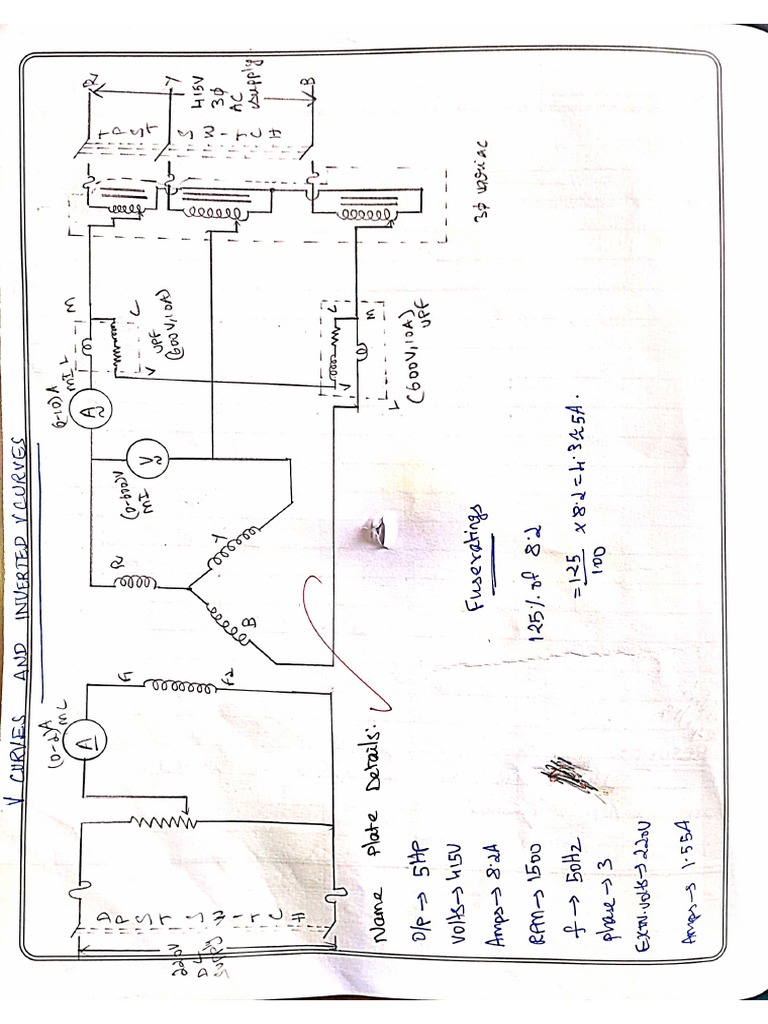 V CURVES AND INVERTED V CURVES
220V
DC
SUPPLY
DPST SWITCH
(0-2)A
MC
A
F1
F2
R
Y
B
(0-600)V
MI
V
(0-10)A
MI
A
L
M
C
V
UPF
(600V,10A)
L
M
C
V
(600V,10A)
UPF
3φ variac
TPST SWITCH
R
Y
B
415V
3φ
AC
supply
Name Plate Details:
O/P → 5HP
Volts → 415V
Amps → 8.2A
RPM → 1500
f → 50Hz
phase → 3
EXTN. volts → 220V
Amps → 1.55A
Fuse ratings
125% of 8.2
= 125/100 x 8.2 =